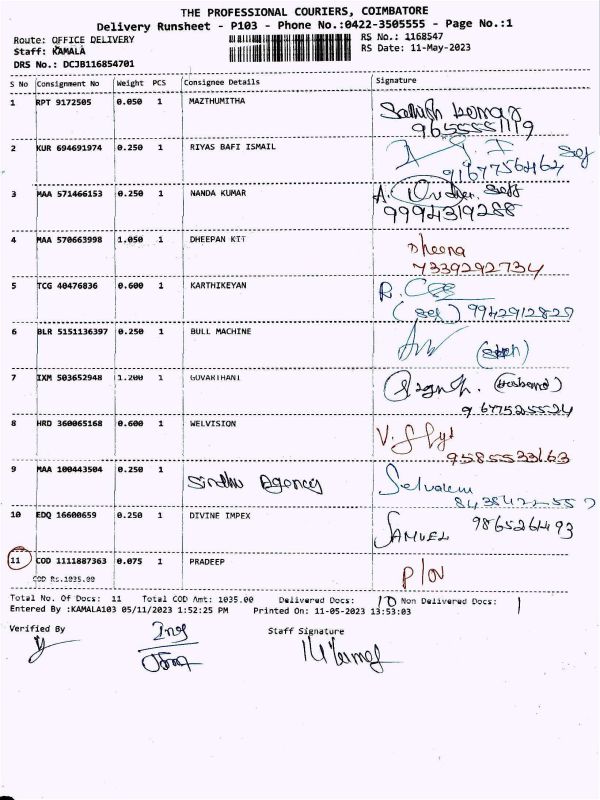 THE PROFESSIONAL COURIERS, COIMBATORE
Delivery Runsheet - P103 - Phone No.:0422-3505555 - Page No.:1
Route: OFFICE DELIVERY RS No.: 1168547
Staff: KAMALA RS Date: 11-May-2023
DRS No.: DCJB116854701
S No Consignment No Weight PCS Consignee Details Signature
1 RPT 9172505 0.050 1 MAZTHUMITHA
9655551119
2 KUR 694691974 0.250 1 RIYAS BAFI ISMAIL
9167756462
3 MAA 571466153 0.250 1 NANDA KUMAR
9994319288
4 MAA 570663998 1.050 1 DHEEPAN KIT Dheena
7339292734
5 TCG 40476836 0.600 1 KARTHIKEYAN
(self) 9942912829
6 BLR 5151136397 0.250 1 BULL MACHINE
7 IXM 503652948 1.200 1 GOVARTHANI (Husband)
9677525524
8 HRD 360065168 0.600 1 WELVISION
9585533163
9 MAA 100443504 0.250 1 Sindhu Agency
10 EDQ 16600659 0.250 1 DIVINE IMPEX SAMUEL 9865261493
11 COD 1111887363 0.075 1 PRADEEP
COD Rs.1035.00
Total No. Of Docs: 11 Total COD Amt: 1035.00 Delivered Docs: 10 Non Delivered Docs: 1
Entered By :KAMALA103 05/11/2023 1:52:25 PM Printed On: 11-05-2023 13:53:03
Verified By Staff Signature